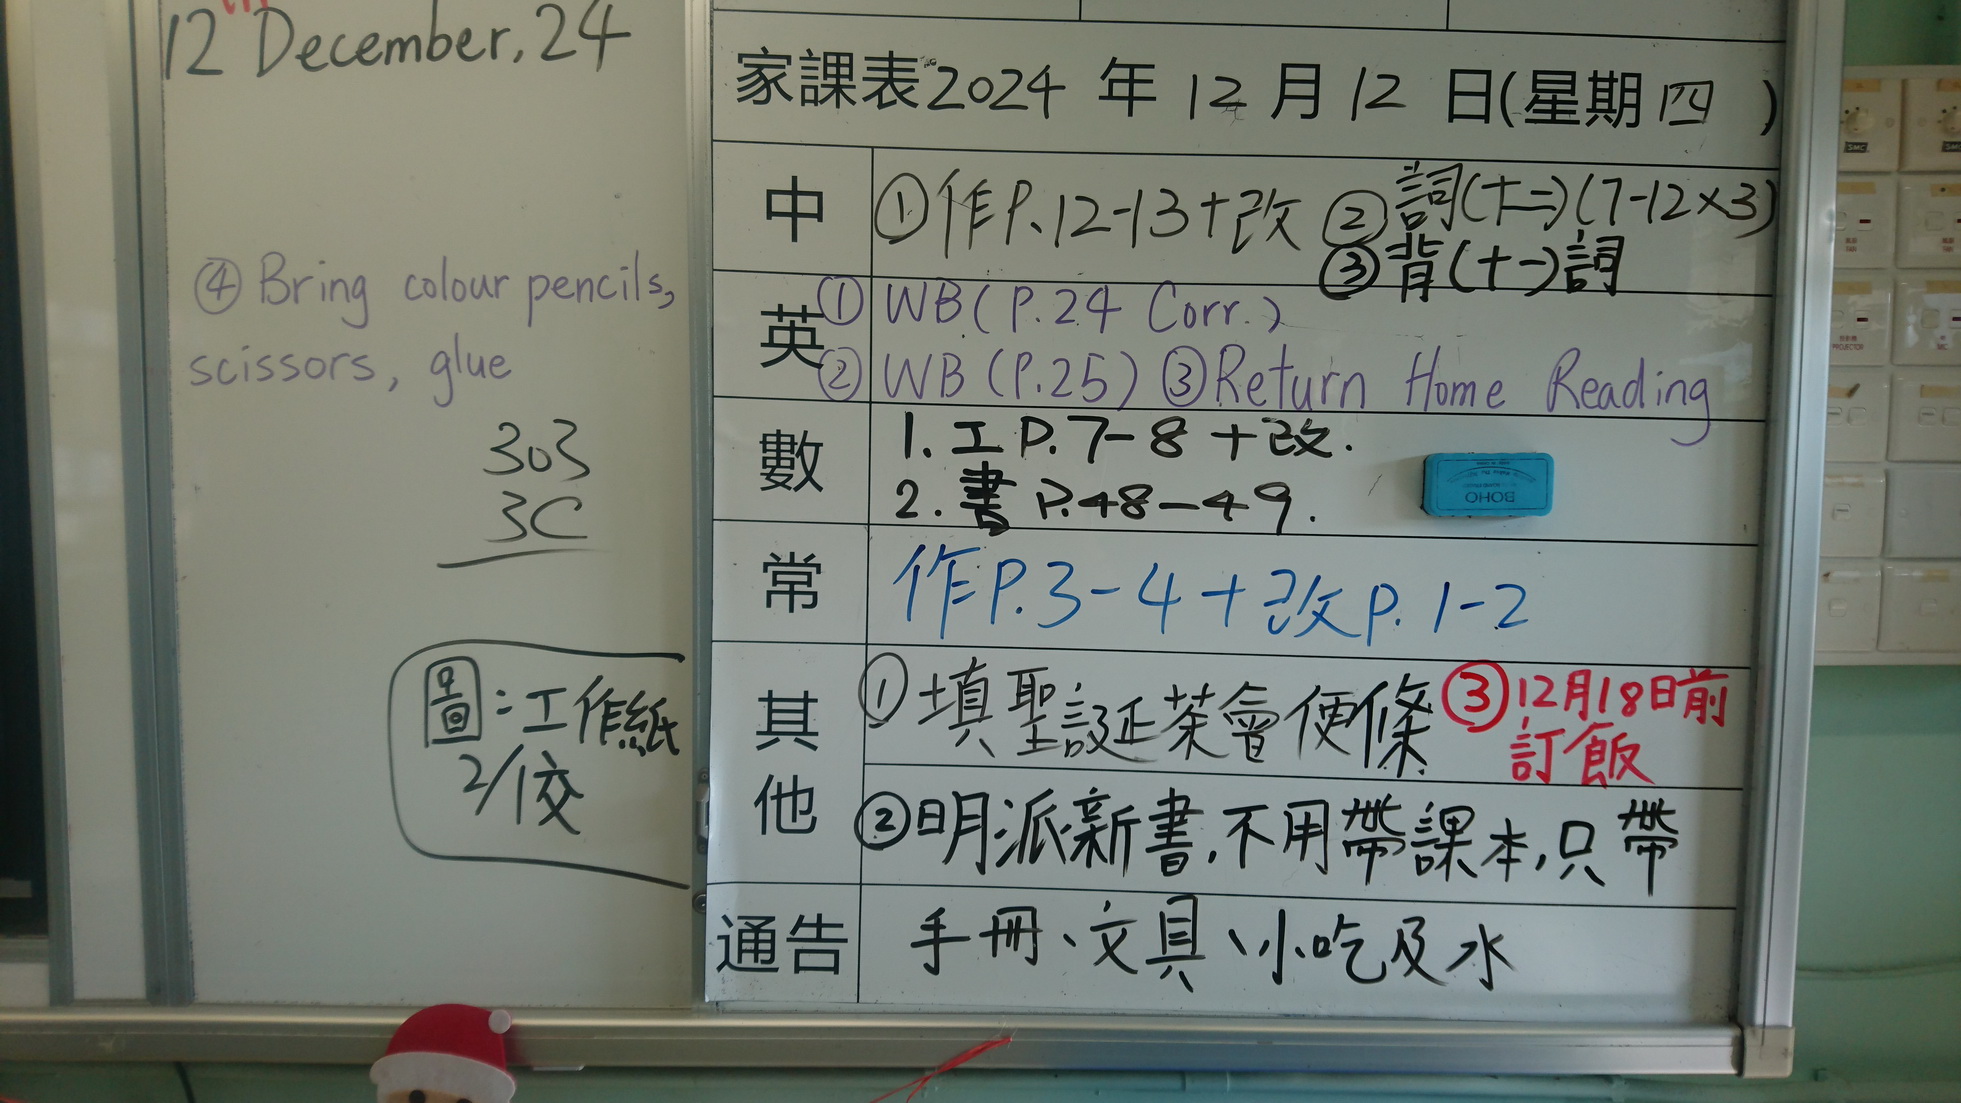 12th December, 24
④ Bring colour pencils,
scissors, glue
303
3C
圖：工作紙
2/1交
家課表 2024 年 12 月 12 日(星期四)
中
①作P.12-13+改 ②詞(十二)(7-12×3)
③背(十一)詞
英
① WB (P.24 Corr.)
② WB (P.25) ③ Return Home Reading
數
1. 工P.7-8 +改.
2. 書 P.48-49.
BOHO
常
作P.3-4+改P.1-2
其他
①填聖誕茶會便條 ③12月18日前
訂飯
②明派新書,不用帶課本,只帶
通告
手冊、文具、小吃及水